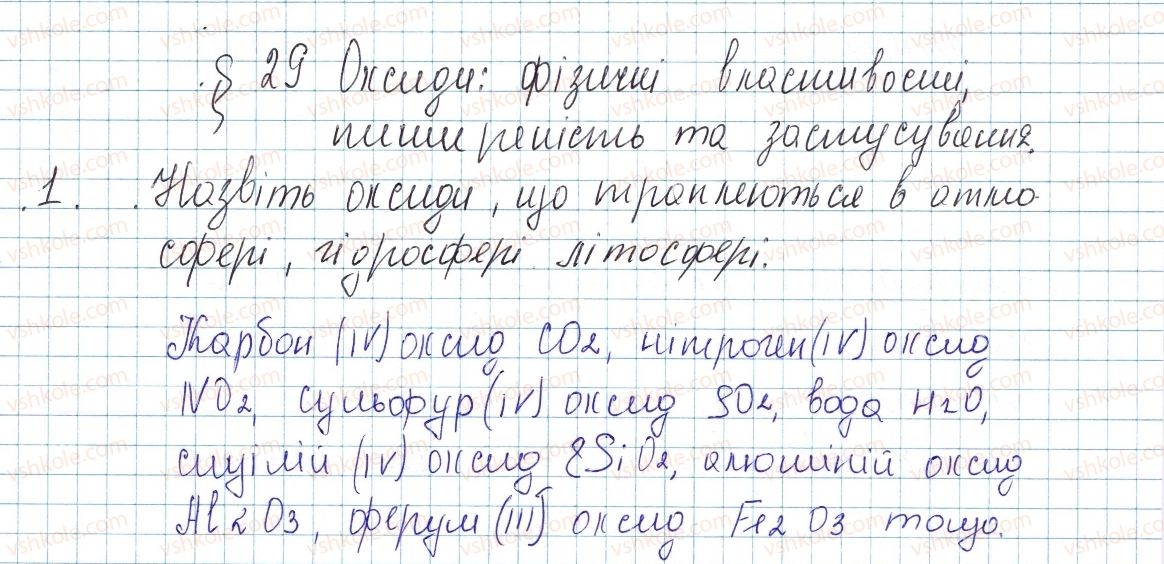 § 29 Оксиди: фізичні властивості,
поширеність та застусування.
1. Назвіть оксиди, що трапляються в атмо-
сфері, гідросфері літосфері.
Карбон (IV) оксид CO2, нітроген (IV) оксид
NO2, сульфур (IV) оксид SO2, вода H2O,
силіцій (IV) оксид SiO2, алюміній оксид
Al2O3, ферум (III) оксид Fe2O3 тощо.